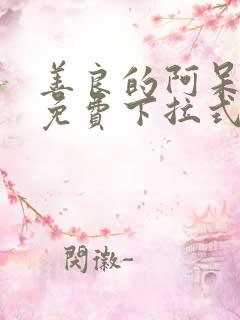 善良的阿呆
免費下拉式
閔徽-